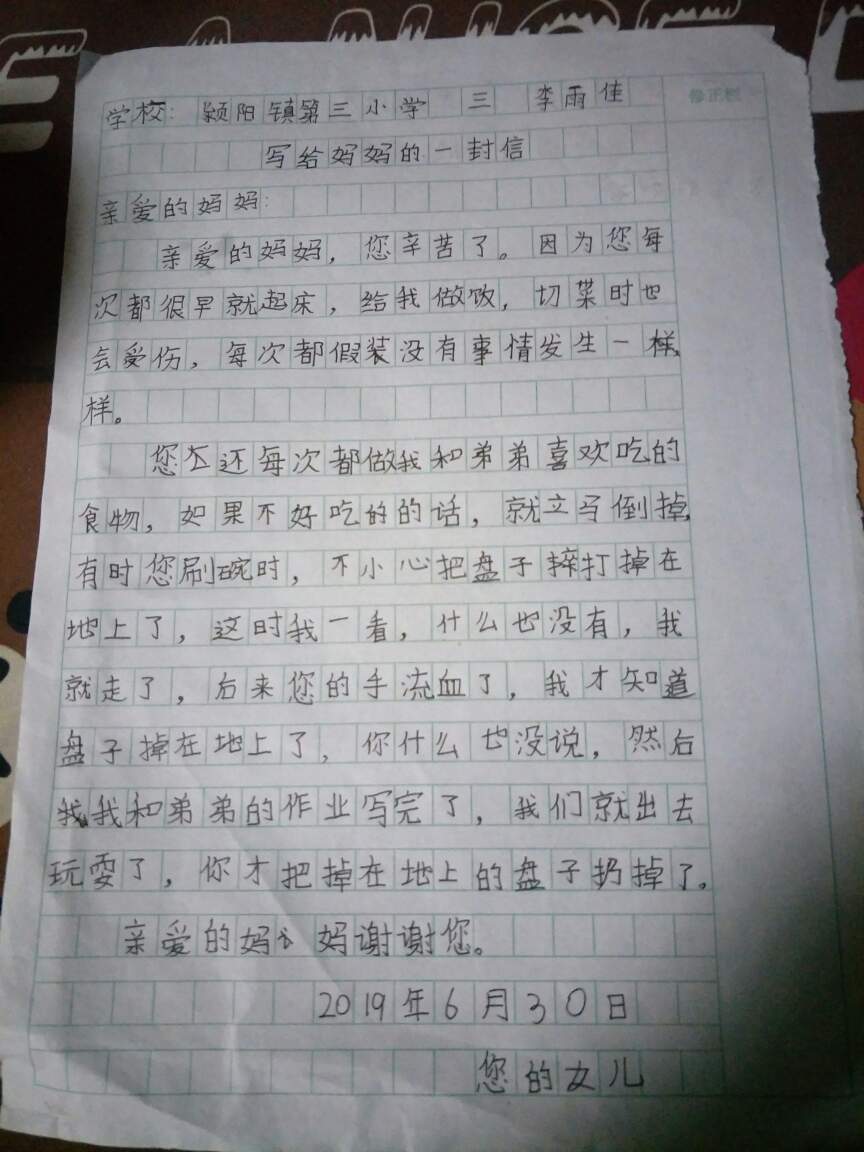 学校：颍阳镇第三小学 三 李雨佳
修正栏
写给妈妈的一封信
亲爱的妈妈：
亲爱的妈妈，您辛苦了。因为您每
次都很早就起床，给我做饭，切菜时也
会受伤，每次都假装没有事情发生一样
样。
您还每次都做我和弟弟喜欢吃的
食物，如果不好吃的的话，就立马倒掉，
有时您刷碗时，不小心把盘子摔打掉在
地上了，这时我一看，什么也没有，我
就走了，后来您的手流血了，我才知道
盘子掉在地上了，你什么也没说，然后
我我和弟弟的作业写完了，我们就出去
玩耍了，你才把掉在地上的盘子扔掉了。
亲爱的妈妈谢谢您。
2019年6月30日
您的女儿